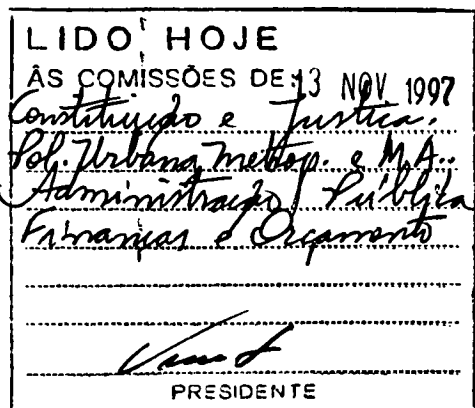 LIDO HOJE
ÀS COMISSÕES DE: 13 NOV 1997
Constituição e Justiça.
Pol. Urbana, Metrop. e M.A..
Administração Pública
Finanças e Orçamento
PRESIDENTE